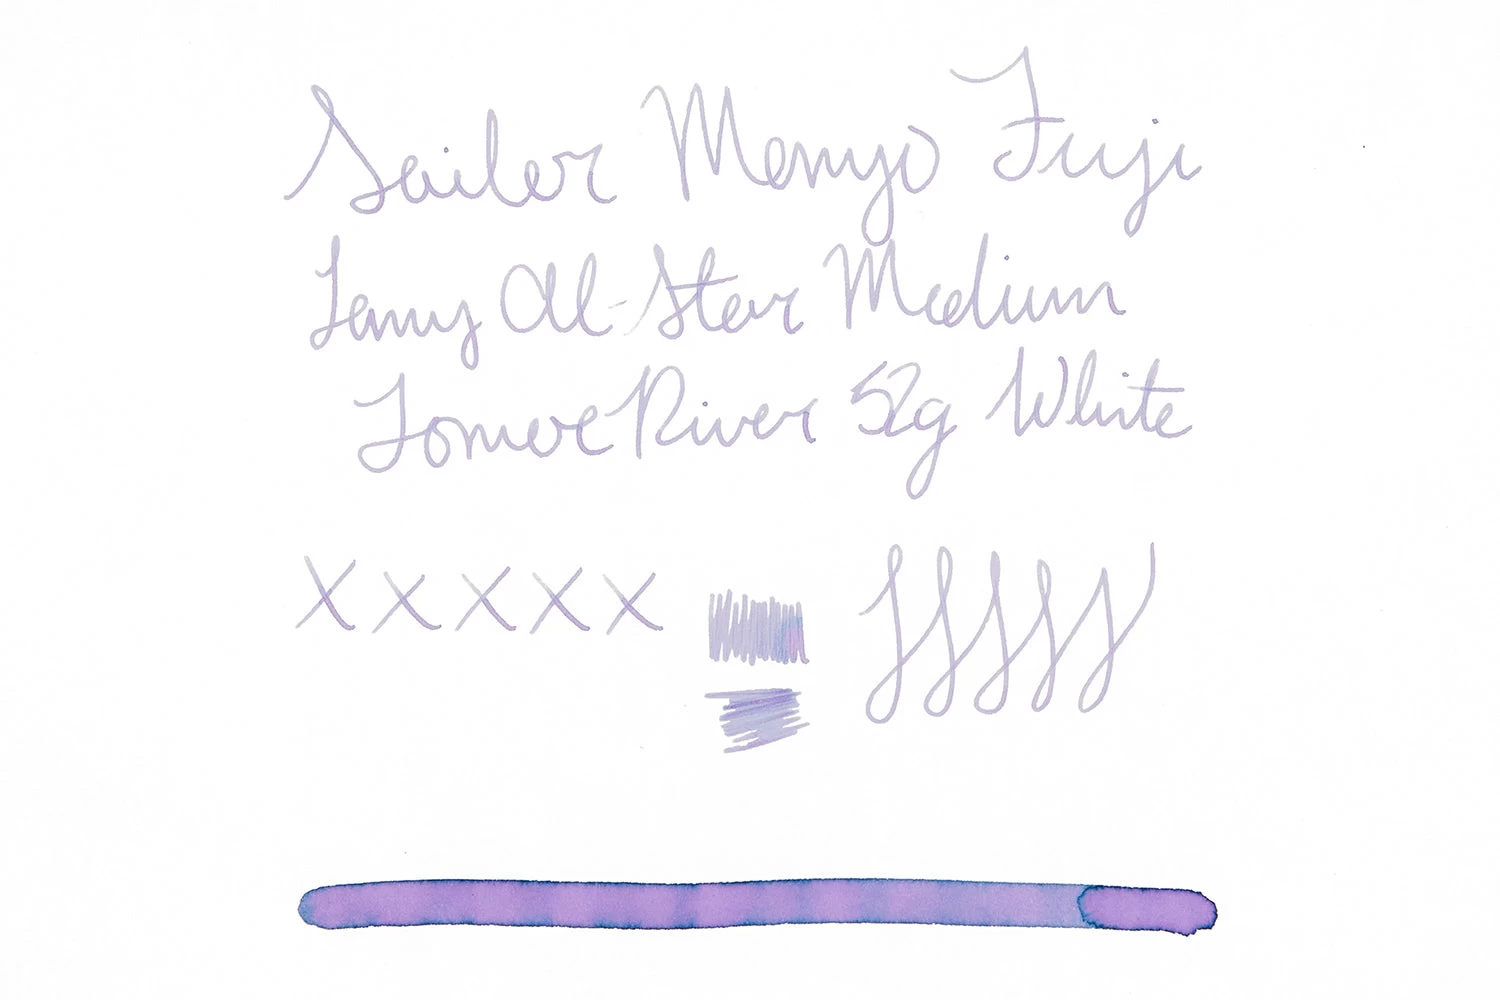 Sailor Manyo Fuji
Lamy Al-Star Medium
Tomoe River 52g White
x x x x x